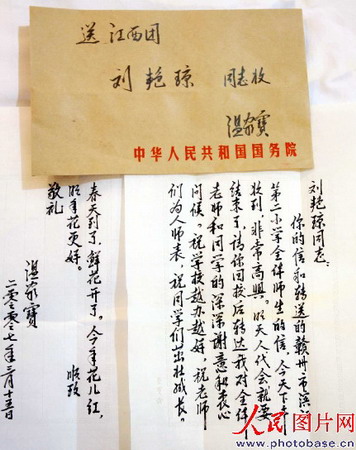 送 江西团
刘艳琼 同志收
温家寶
中华人民共和国国务院
刘艳琼同志：
你的信和转送的赣州市滨江
第二小学全体师生的信，今天下午
收到，非常高興。明天人代会就要
结束了，请你回校后转达我对全体
老师和同学的深深谢意和衷心
问候。祝学校越办越好，祝老师
们为人师表，祝同学们茁壮成长。
春天到了，鲜花开了。今年花儿红，
明年花更好。 顺致
敬礼
温家寶
二〇〇七年三月十五日
人民图片网
www.photobase.cn